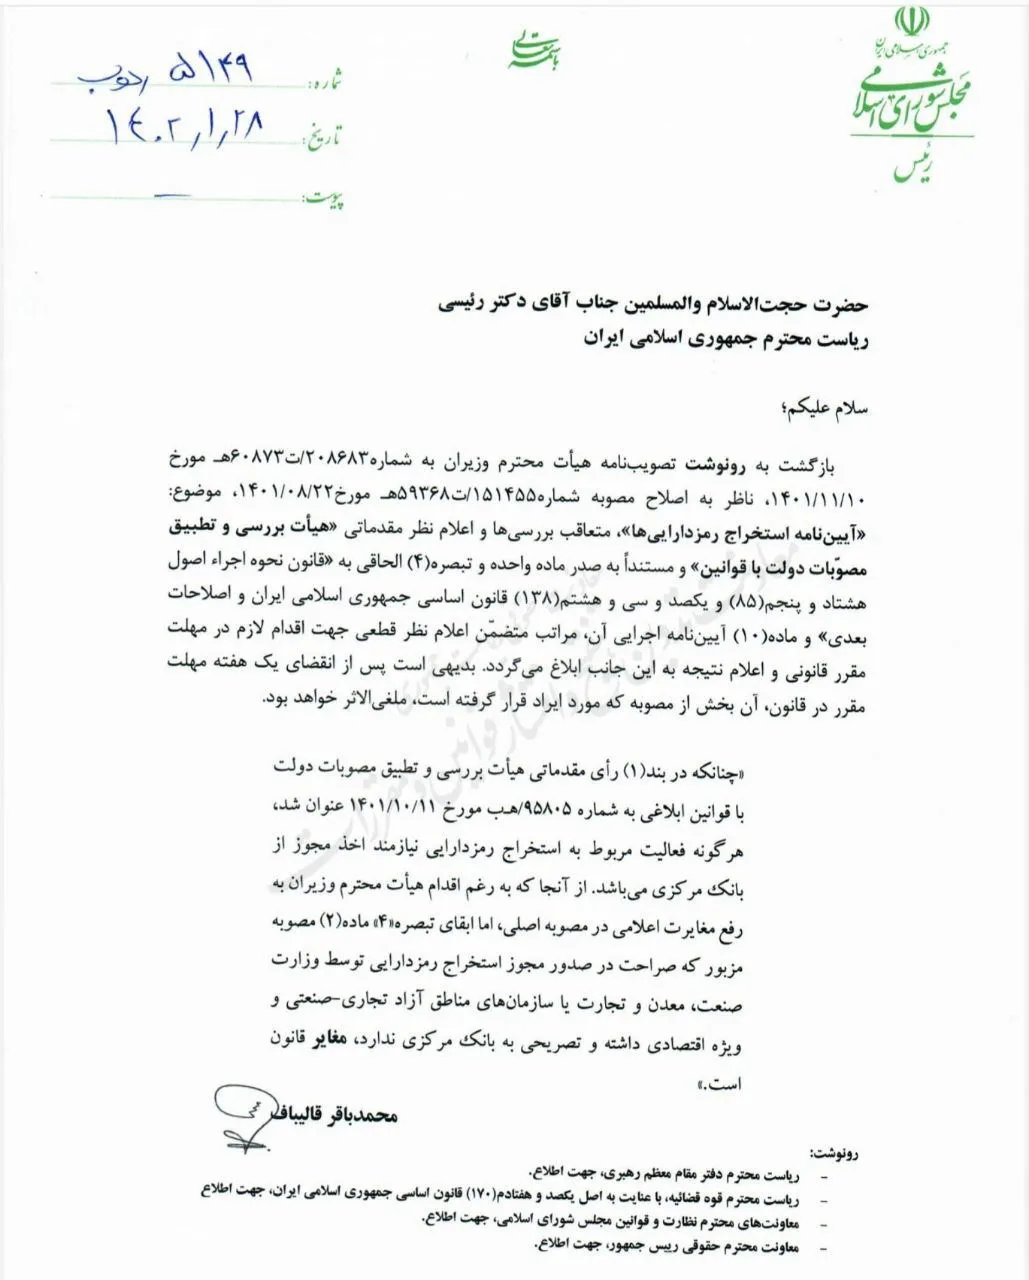 باسمه تعالی
جمهوری اسلامی ایران
مجلس شورای اسلامی
رئیس
شماره: ۵۱۴۹
تاریخ: ۱۴۰۲/۱/۲۸
پیوست: —
حضرت حجت‌الاسلام والمسلمین جناب آقای دکتر رئیسی
ریاست محترم جمهوری اسلامی ایران
سلام علیکم؛
بازگشت به رونوشت تصویب‌نامه هیأت محترم وزیران به شماره۲۰۸۶۸۳/ت۶۰۸۷۳هـ مورخ
۱۴۰۱/۱۱/۱۰، ناظر به اصلاح مصوبه شماره۱۵۱۴۵۵/ت۵۹۳۶۸هـ مورخ۱۴۰۱/۰۸/۲۲، موضوع:
«آیین‌نامه استخراج رمزدارایی‌ها»، متعاقب بررسی‌ها و اعلام نظر مقدماتی «هیأت بررسی و تطبیق
مصوّبات دولت با قوانین» و مستنداً به صدر ماده واحده و تبصره(۴) الحاقی به «قانون نحوه اجراء اصول
هشتاد و پنجم(۸۵) و یکصد و سی و هشتم(۱۳۸) قانون اساسی جمهوری اسلامی ایران و اصلاحات
بعدی» و ماده(۱۰) آیین‌نامه اجرایی آن، مراتب متضمّن اعلام نظر قطعی جهت اقدام لازم در مهلت
مقرر قانونی و اعلام نتیجه به این جانب ابلاغ می‌گردد. بدیهی است پس از انقضای یک هفته مهلت
مقرر در قانون، آن بخش از مصوبه که مورد ایراد قرار گرفته است، ملغی‌الاثر خواهد بود.
«چنانکه در بند(۱) رأی مقدماتی هیأت بررسی و تطبیق مصوبات دولت
با قوانین ابلاغی به شماره ۹۵۸۰۵/هـب مورخ ۱۴۰۱/۱۰/۱۱ عنوان شد،
هرگونه فعالیت مربوط به استخراج رمزدارایی نیازمند اخذ مجوز از
بانک مرکزی می‌باشد. از آنجا که به رغم اقدام هیأت محترم وزیران به
رفع مغایرت اعلامی در مصوبه اصلی، اما ابقای تبصره«۴» ماده(۲) مصوبه
مزبور که صراحت در صدور مجوز استخراج رمزدارایی توسط وزارت
صنعت، معدن و تجارت یا سازمان‌های مناطق آزاد تجاری-صنعتی و
ویژه اقتصادی داشته و تصریحی به بانک مرکزی ندارد، مغایر قانون
است.»
محمدباقر قالیباف
رونوشت:
- ریاست محترم دفتر مقام معظم رهبری، جهت اطلاع.
- ریاست محترم قوه قضائیه، با عنایت به اصل یکصد و هفتادم(۱۷۰) قانون اساسی جمهوری اسلامی ایران، جهت اطلاع
- معاونت‌های محترم نظارت و قوانین مجلس شورای اسلامی، جهت اطلاع.
- معاونت محترم حقوقی رییس جمهور، جهت اطلاع.